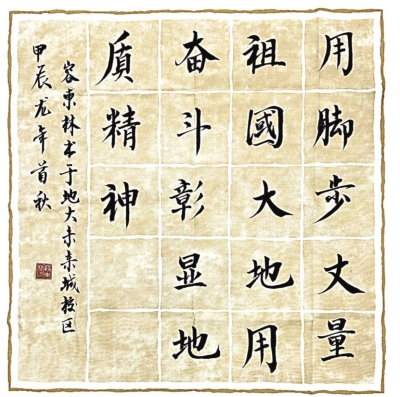 用脚步丈量
祖國大地用
奋斗彰显地
质精神
容東林书于地大未来城校区
甲辰龙年首秋